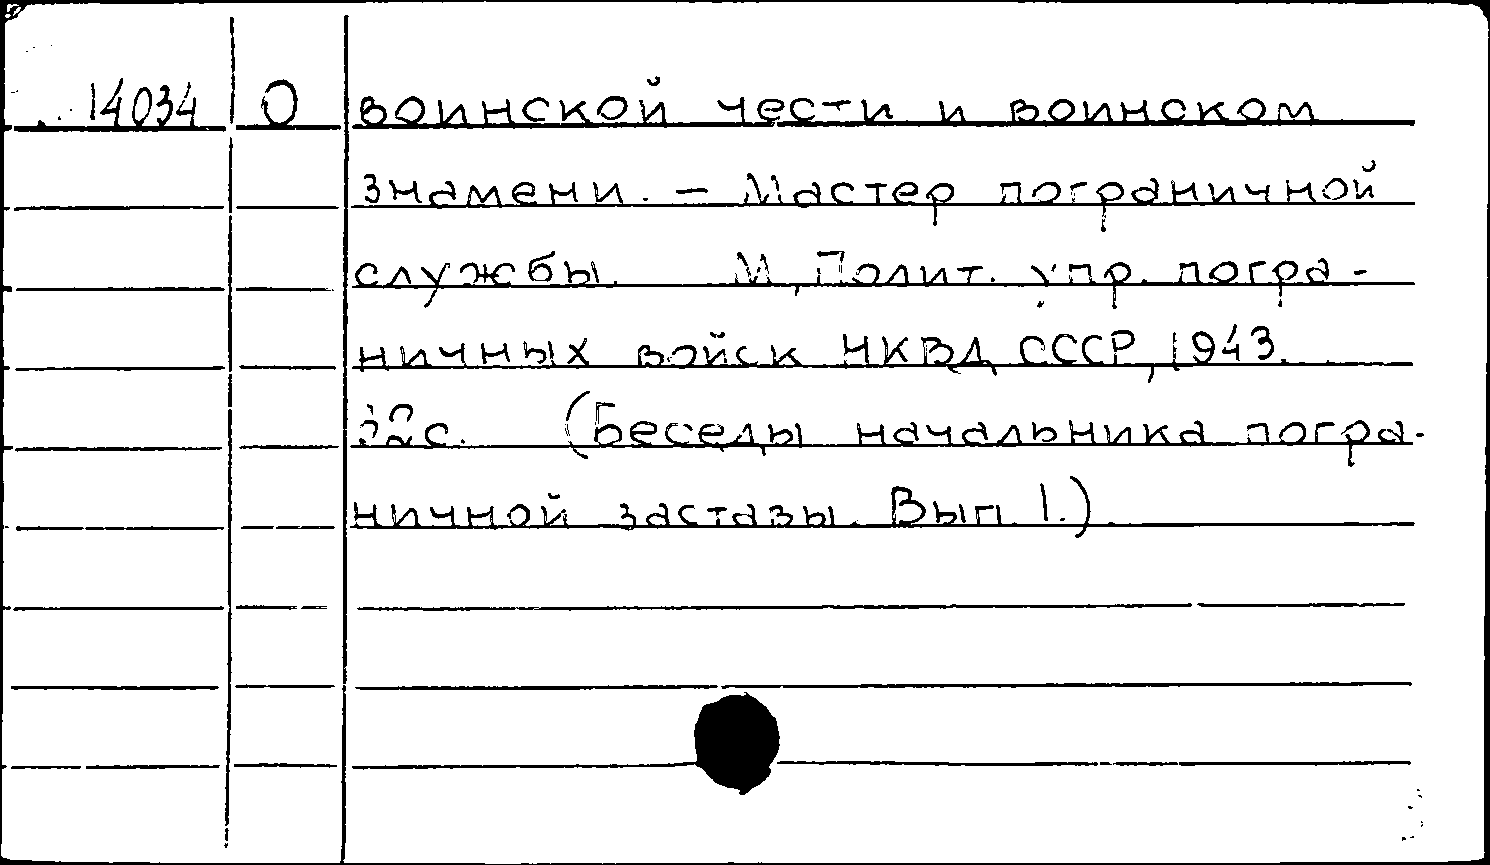 14034 О воинской чести и воинском
знамени. — Мастер пограничной
службы. М, Полит. упр. погра-
ничных войск НКВД СССР, 1943.
32с. (Беседы начальника погра-
ничной заставы. Вып. 1.)